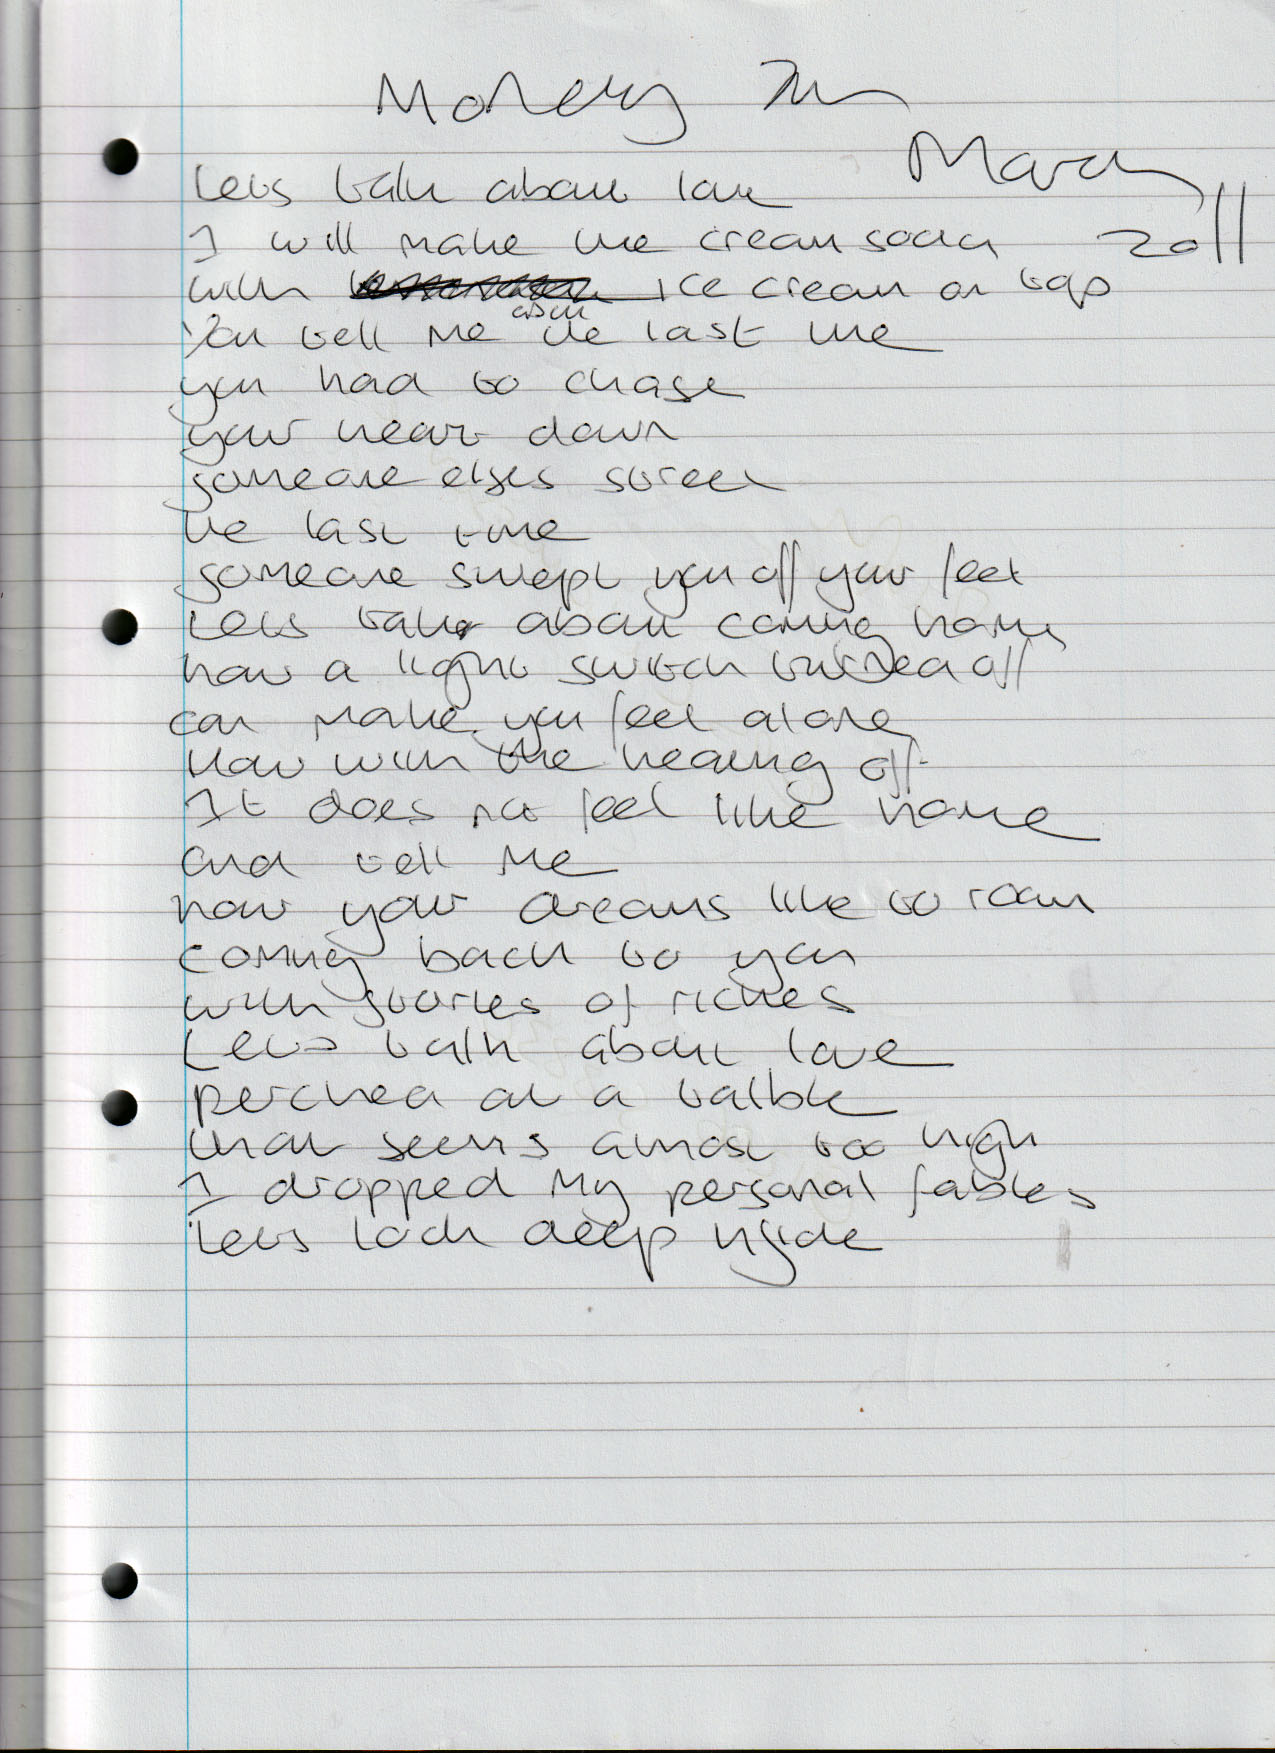 Monday 7th
March
2011
Lets talk about love
I will make the cream soda
with ice cream on top
You tell me about the last time
you had to chase
your heart down
someone elses street
the last time
someone swept you off your feet
Lets talk about coming home
how a light switch turned off
can make you feel alone
How with the heating off
It does not feel like home
and tell me
how your dreams like to roam
coming back to you
with stories of riches
Lets talk about love
perched at a talble
that seems almost too high
I dropped my personal fables
Lets look deep inside